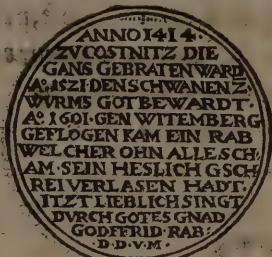 ANNO 1414·
ZV COSTNITZ DIE
GANS GEBRATEN WARD
Aº. 1521. DEN SCHWANEN Z.
WVRMS GOT BEWARDT.
Aº. 1601. GEN WITEMBERG
GEFLOGEN KAM EIN RAB
WELCHER OHN ALLE SCH
AM· SEIN HESLICH GSCH
REI VERLASEN HADT.
ITZT LIEBLICH SINGT
DVRCH GOTES GNAD
GODFFRID· RAB·
·D·D·V·M·